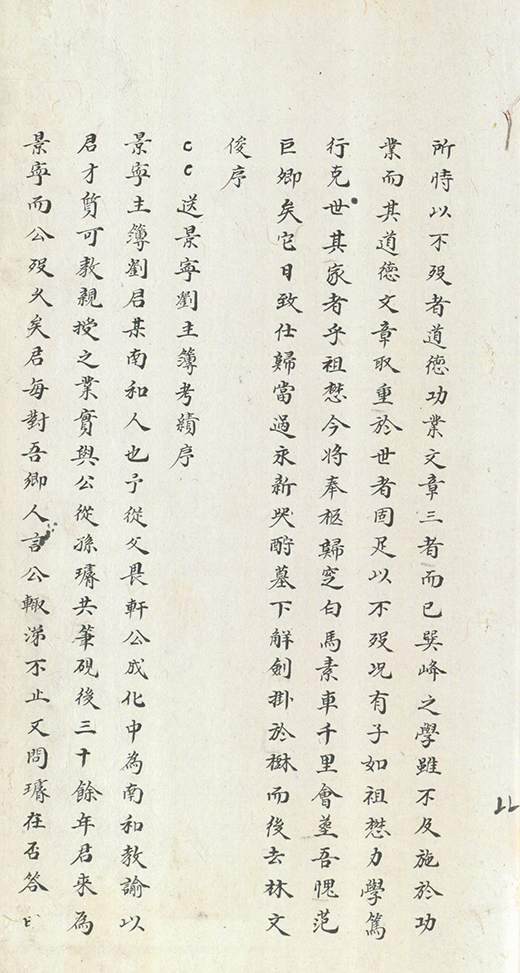 所時以不歿者道德功業文章三者而已巽峰之學雖不及施於功
業而其道德文章取重於世者固足以不歿况有子如祖懋力學篤
行克世其家者乎祖懋今将奉柩歸窆白馬素車千里會塟吾愧范
巨卿矣它日致仕歸當過永新哭酹墓下解劍掛於樹而後去林文
俊序
送景寧劉主簿考績序
景寧主簿劉君某南和人也予從父畏軒公成化中為南和教諭以
君才質可教親授之業實與公從孫璿共筆硯後三十餘年君来為
景寧而公歿久矣君每對吾鄉人言公輙涕不止又問璿在否答